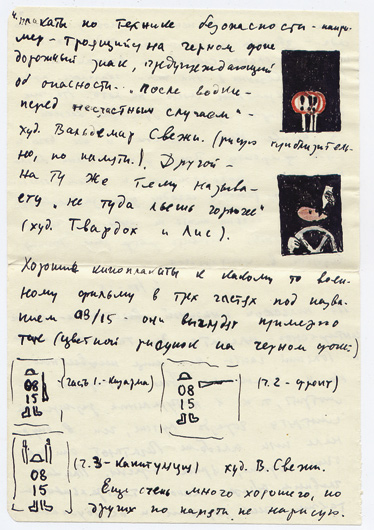 плакаты по технике безопасности - напри-
мер - троящийся на черном фоне
дорожный знак, предупреждающий
об опасности. "После водки -
перед несчастным случаем" -
худ. Вальдемар Свежи. (рисую приблизитель-
но, по памяти.). Другой -
на ту же тему называ-
ется "не туда льёшь горючее"
(худ. Твардох и Лис).
Хорошие киноплакаты к какому то воен-
ному фильму в трёх частях под назва-
нием 08/15 - они выглядят примерно
так (цветной рисунок на черном фоне:)
08
15
(часть 1. - Казарма)
08
15
(ч. 2 - фронт)
08
15
(ч. 3 - капитуляция) худ. В. Свежи.
Ещё очень много хорошего, но
других по памяти не нарисую.